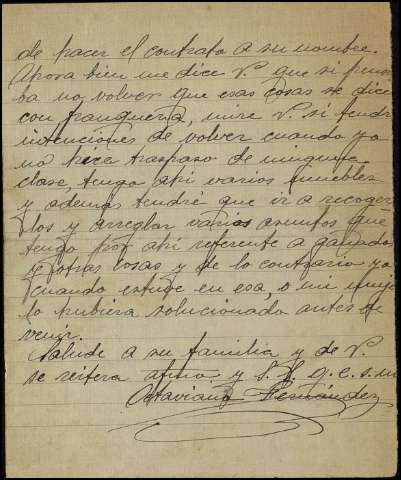 de hacer el contrato a su nombre.
Ahora bien me dice V. que si pensa
ba no volver que esas cosas se dicen
con franqueza, mire V. si tendré
intenciones de volver cuando yo
no hice traspaso de ninguna
clase, tengo ahi varios muebles
y ademas tendré que ir a recoger
los y arreglar varios asuntos que
tengo por ahi referente a ganados
y otras cosas y de lo contrario ya
cuando estube en esa, o mi mujer
lo hubiera solucionado antes de
venir.
Salude a su familia y de V.
se reitera afmo y S. S. q. e. s. m.
Octaviano Fernández